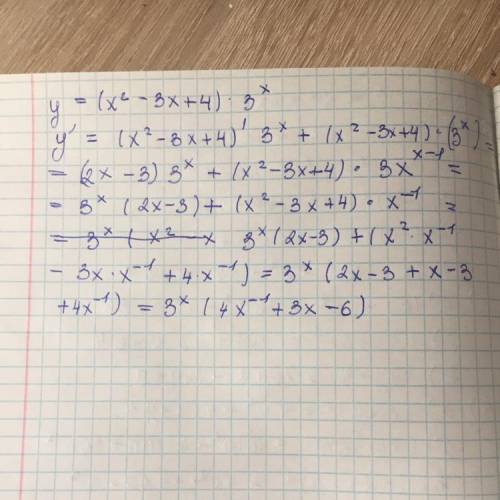 y = (x² - 3x + 4) · 3ˣ
y' = (x² - 3x + 4)' 3ˣ + (x² - 3x + 4) · (3ˣ)' =
= (2x - 3) 3ˣ + (x² - 3x + 4) · 3xˣ⁻¹ =
= 3ˣ (2x - 3) + (x² - 3x + 4) · x⁻¹ =
= 3ˣ ( x² x 3ˣ (2x - 3) + (x² · x⁻¹
- 3x · x⁻¹ + 4 · x⁻¹) = 3ˣ (2x - 3 + x - 3
+ 4x⁻¹) = 3ˣ (4x⁻¹ + 3x - 6)